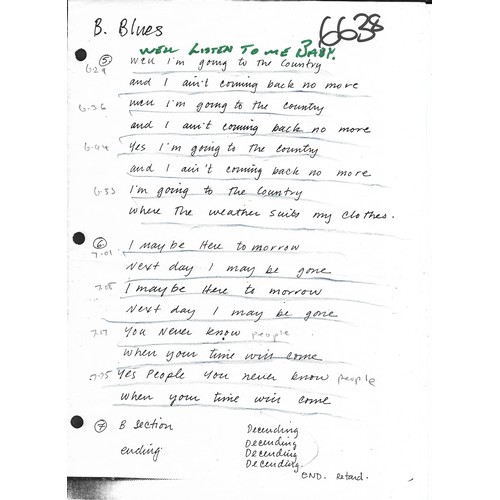 B. Blues
6638
WELL LISTEN TO ME BABY.
⑤ Well I'm going to the Country
6-29
and I ain't coming back no more
6-36 Well I'm going to the country
and I ain't coming back no more
6-44 Yes I'm going to the country
and I ain't coming back no more
6-53 I'm going to the Country
where the weather suits my clothes.
⑥ I may be Here to morrow
7-01
Next day I may be gone
7-08 I may be Here to morrow
Next day I may be gone
7-17 You Never know people
when your time will come
7-25 Yes People you never know people
when your time will come
⑦ B Section Decending
Decending
ending Decending
Decending.
END. retard.